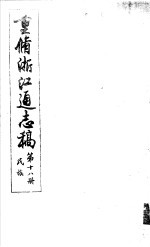 重脩浙江通志稿
第十八册
民族